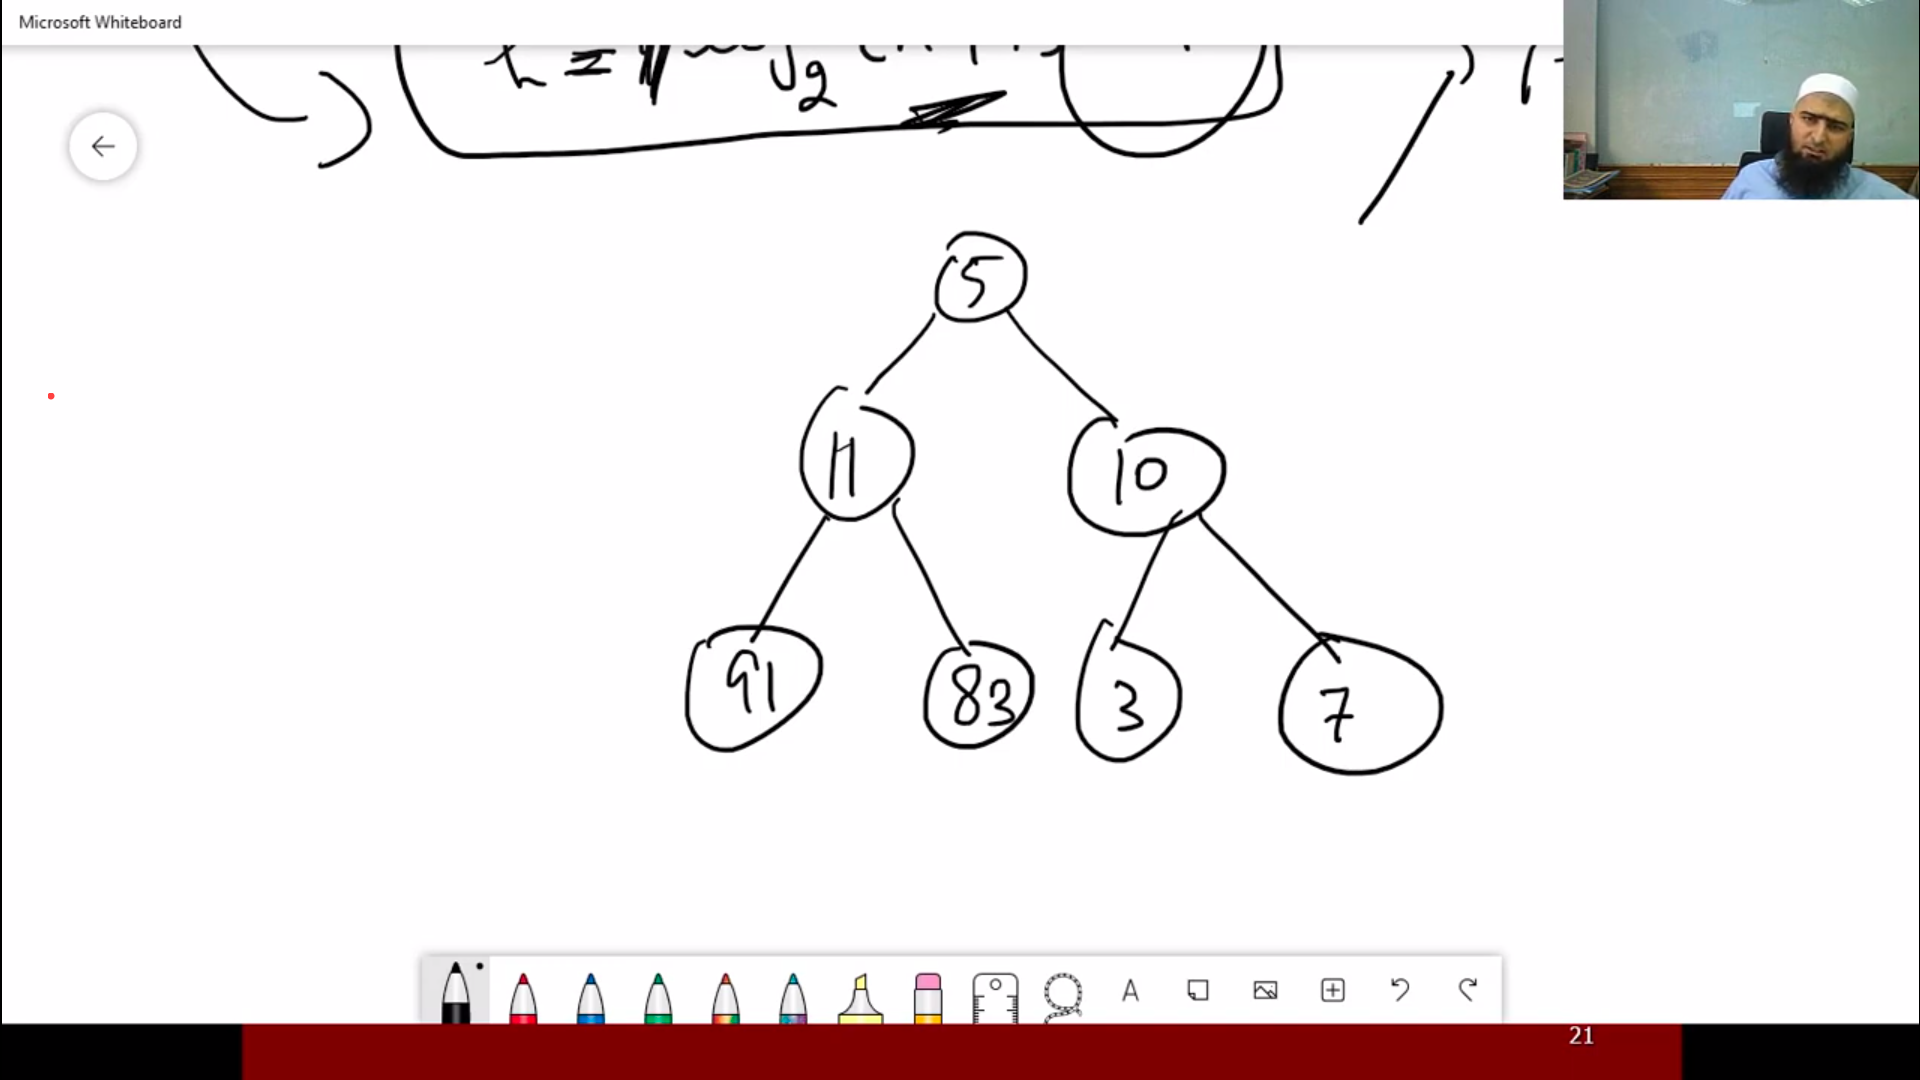 Microsoft Whiteboard
5
11
10
91
83
3
7
A
21